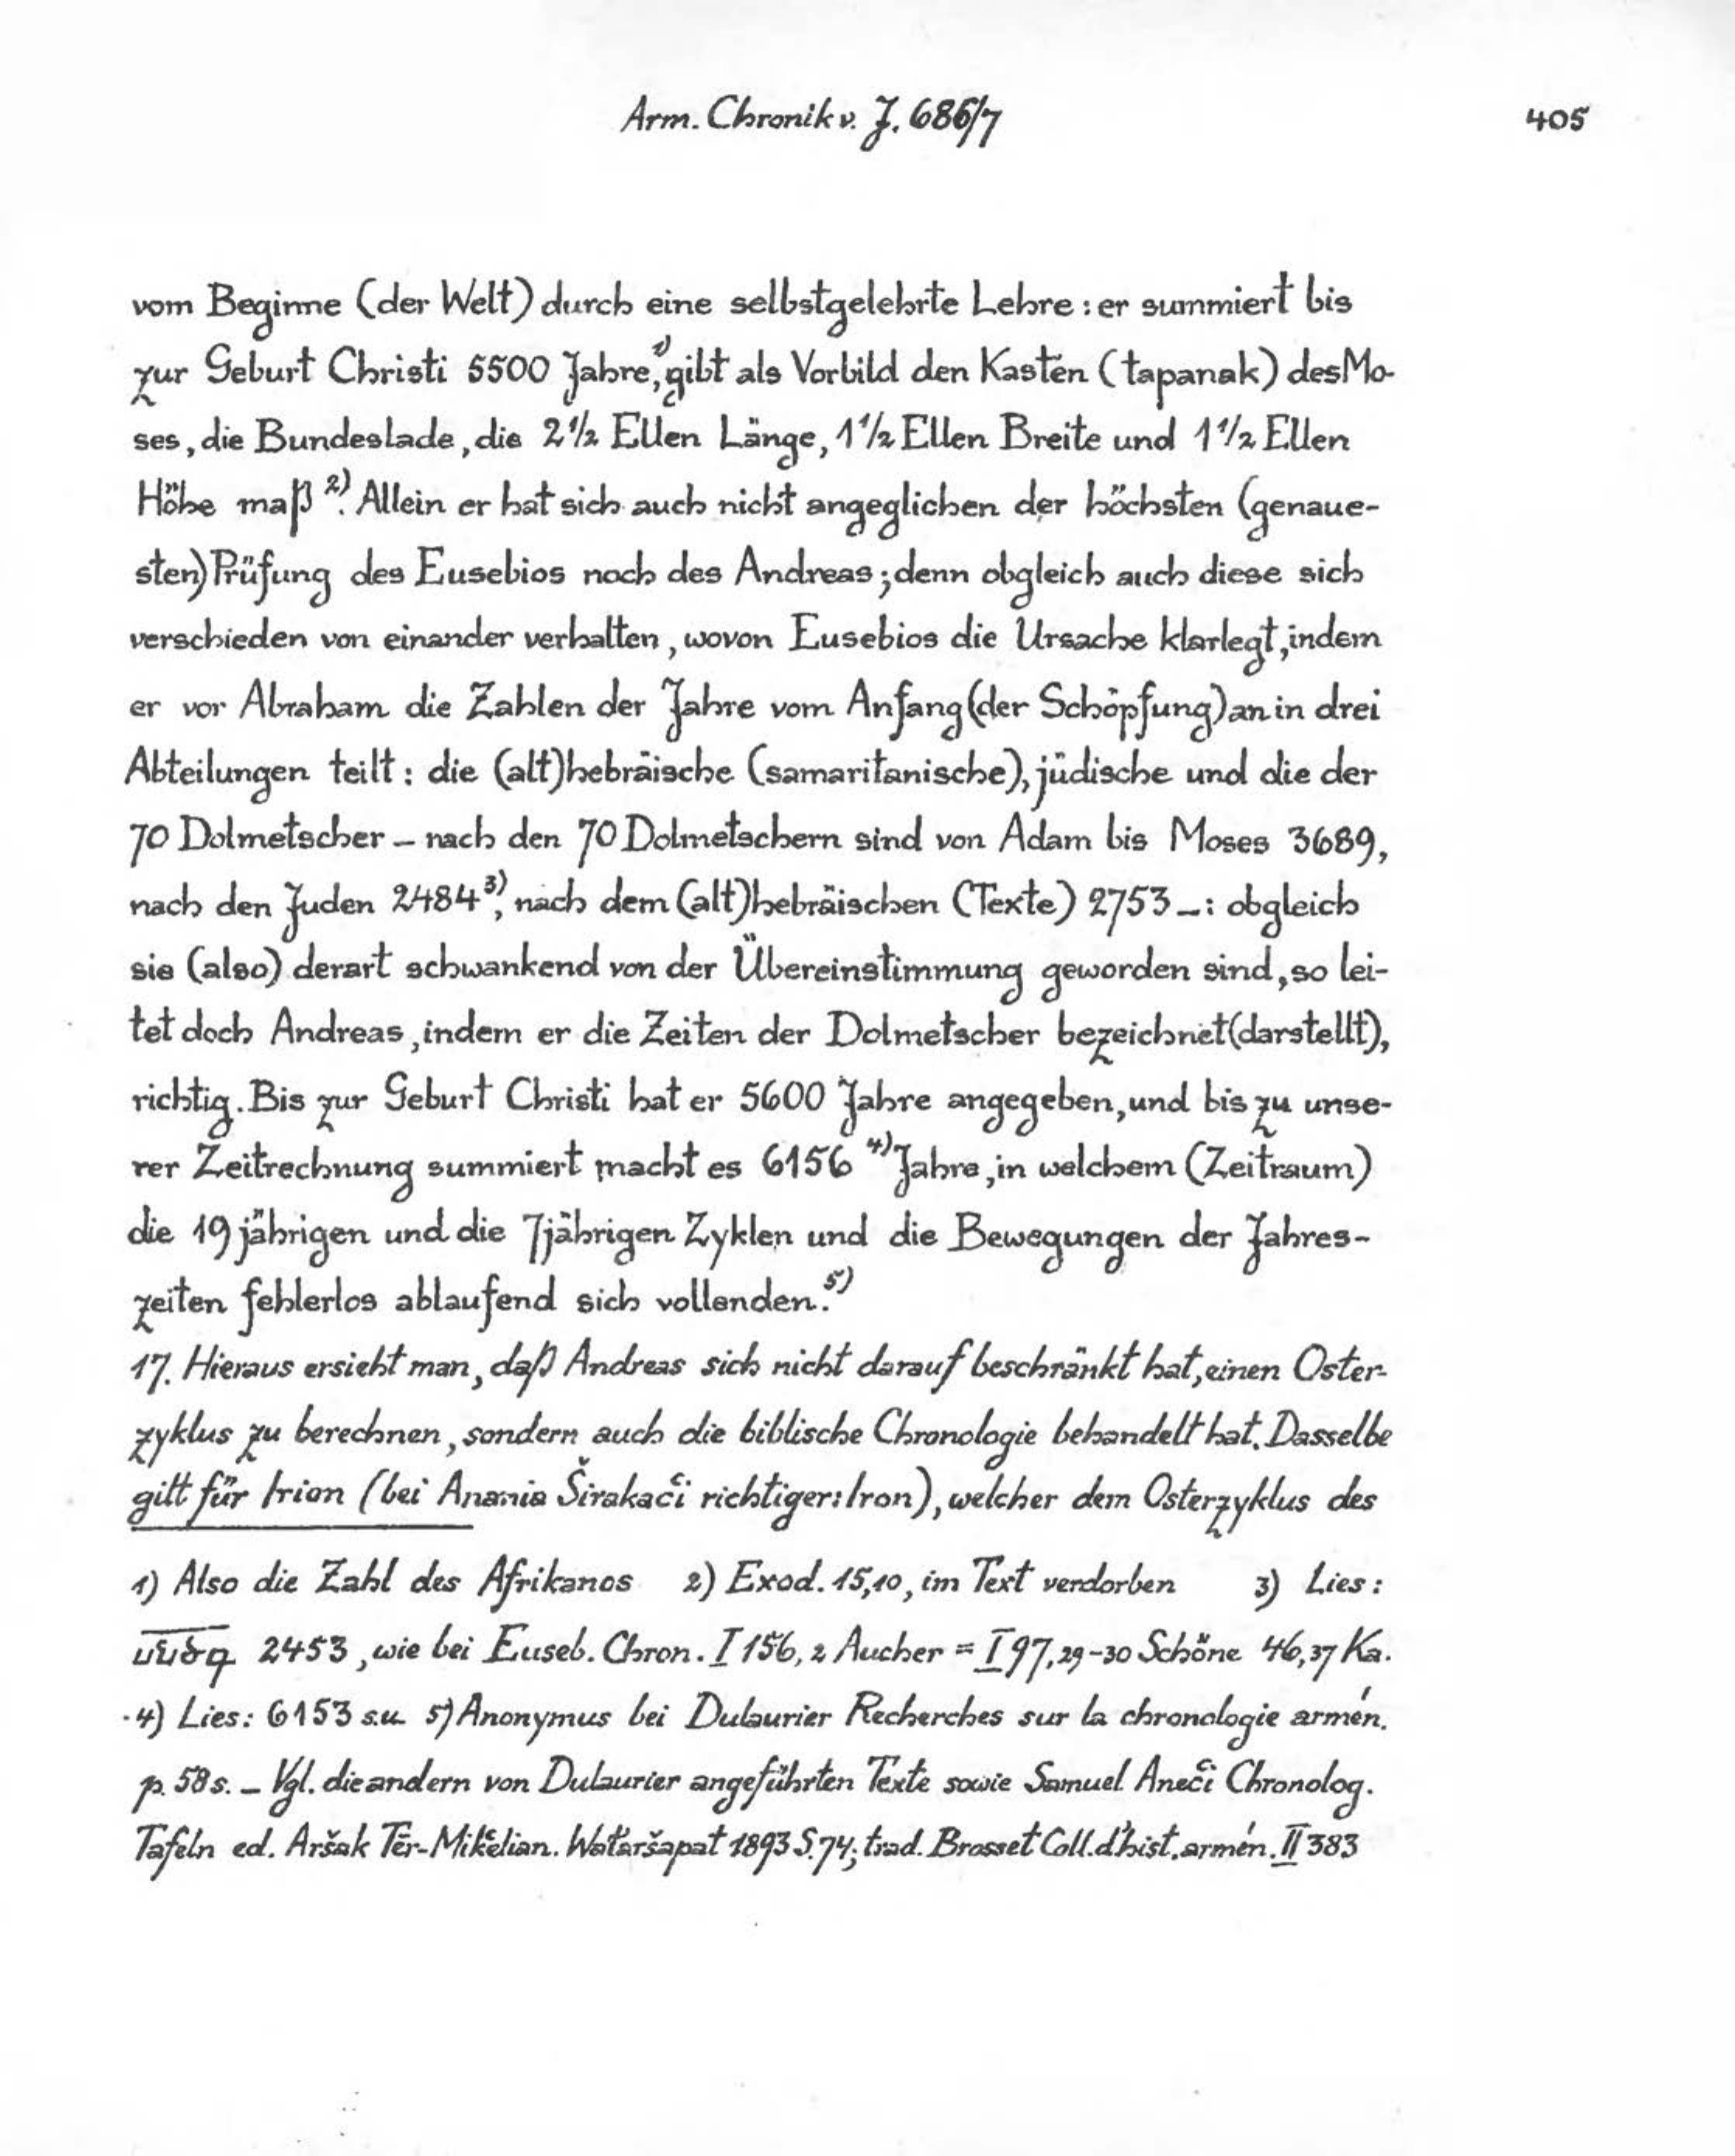 Arm. Chronik v. J. 686/7
405
vom Beginne (der Welt) durch eine selbstgelehrte Lehre : er summiert bis
zur Geburt Christi 5500 Jahre,¹⁾ gibt als Vorbild den Kasten (tapanak) des Mo-
ses, die Bundeslade, die 2 1/2 Ellen Länge, 1 1/2 Ellen Breite und 1 1/2 Ellen
Höhe maß ²⁾. Allein er hat sich auch nicht angeglichen der höchsten (genaue-
sten) Prüfung des Eusebios noch des Andreas; denn obgleich auch diese sich
verschieden von einander verhalten, wovon Eusebios die Ursache klarlegt, indem
er vor Abraham die Zahlen der Jahre vom Anfang (der Schöpfung) an in drei
Abteilungen teilt : die (alt)hebräische (samaritanische), jüdische und die der
70 Dolmetscher – nach den 70 Dolmetschern sind von Adam bis Moses 3689,
nach den Juden 2484³⁾, nach dem (alt)hebräischen (Texte) 2753 – : obgleich
sie (also) derart schwankend von der Übereinstimmung geworden sind, so lei-
tet doch Andreas, indem er die Zeiten der Dolmetscher bezeichnet (darstellt),
richtig. Bis zur Geburt Christi hat er 5600 Jahre angegeben, und bis zu unse-
rer Zeitrechnung summiert macht es 6156 ⁴⁾ Jahre, in welchem (Zeitraum)
die 19 jährigen und die 7 jährigen Zyklen und die Bewegungen der Jahres-
zeiten fehlerlos ablaufend sich vollenden.⁵⁾
17. Hieraus ersieht man, daß Andreas sich nicht darauf beschränkt hat, einen Oster-
zyklus zu berechnen, sondern auch die biblische Chronologie behandelt hat. Dasselbe
gilt für Irion (bei Anania Širakac̔i richtiger: Iron), welcher dem Osterzyklus des
1) Also die Zahl des Afrikanos 2) Exod. 15,10, im Text verdorben 3) Lies :
2453, wie bei Euseb. Chron. I 156, 2 Aucher = I 97, 29-30 Schöne 46, 37 Ka.
4) Lies : 6153 s.u. 5) Anonymus bei Dulaurier Recherches sur la chronologie armén.
p. 58 s. – Vgl. die andern von Dulaurier angeführten Texte sowie Samuel Anec̔i Chronolog.
Tafeln ed. Aršak Tēr-Mik̔elian. Wałaršapat 1893 S. 74; trad. Brosset Coll. d'hist. armén. II 383